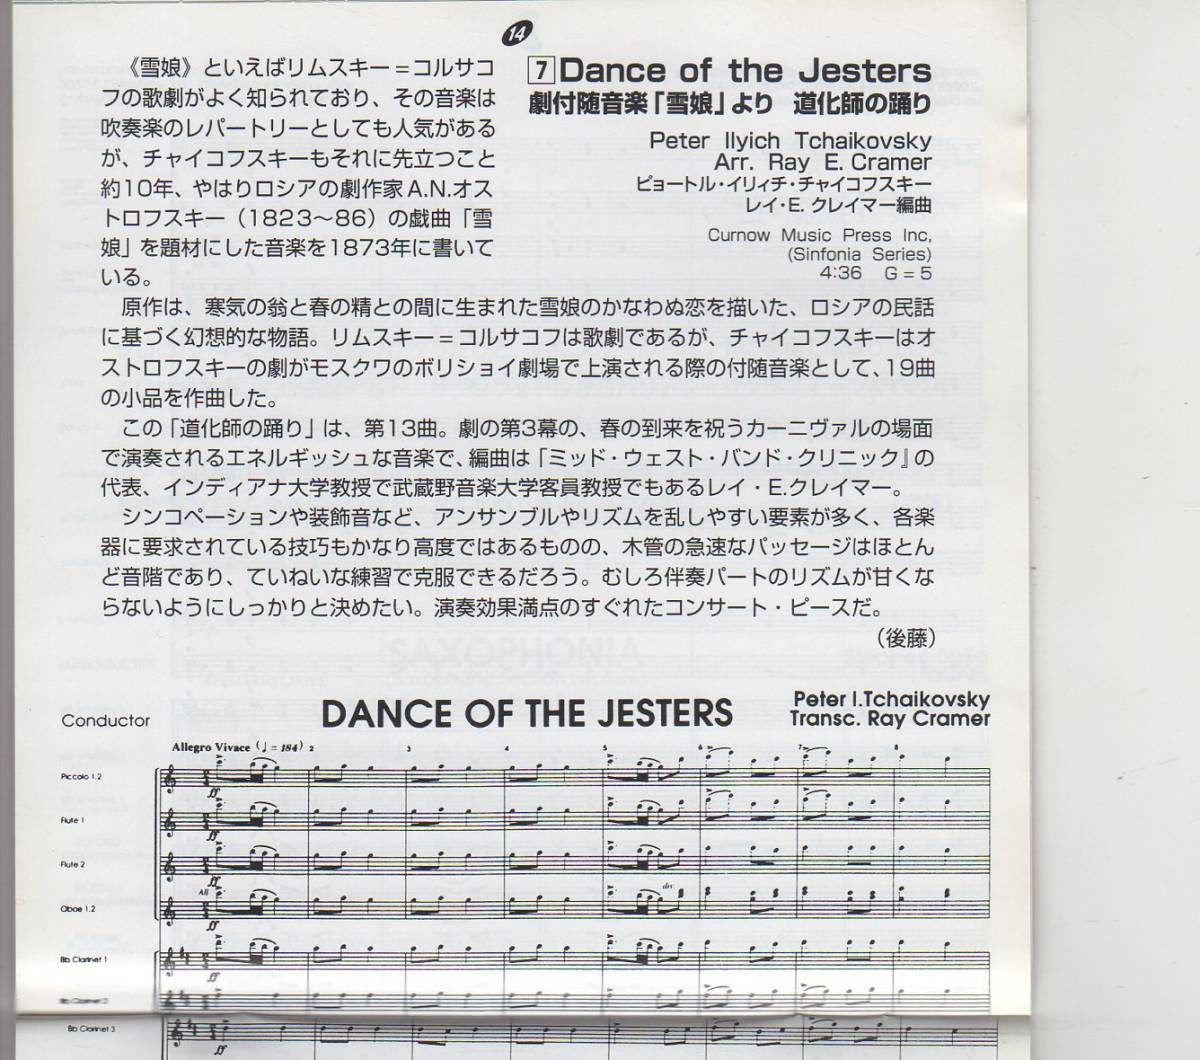 14
《雪娘》といえばリムスキー＝コルサコ
フの歌劇がよく知られており、その音楽は
吹奏楽のレパートリーとしても人気がある
が、チャイコフスキーもそれに先立つこと
約10年、やはりロシアの劇作家A.N.オス
トロフスキー（1823〜86）の戯曲「雪
娘」を題材にした音楽を1873年に書いて
いる。
7 Dance of the Jesters
劇付随音楽「雪娘」より　道化師の踊り
Peter Ilyich Tchaikovsky
Arr. Ray E. Cramer
ピョートル・イリィチ・チャイコフスキー
レイ・E. クレイマー編曲
Curnow Music Press Inc,
(Sinfonia Series)
4:36　G＝5
原作は、寒気の翁と春の精との間に生まれた雪娘のかなわぬ恋を描いた、ロシアの民話
に基づく幻想的な物語。リムスキー＝コルサコフは歌劇であるが、チャイコフスキーはオ
ストロフスキーの劇がモスクワのボリショイ劇場で上演される際の付随音楽として、19曲
の小品を作曲した。
この「道化師の踊り」は、第13曲。劇の第3幕の、春の到来を祝うカーニヴァルの場面
で演奏されるエネルギッシュな音楽で、編曲は「ミッド・ウェスト・バンド・クリニック』の
代表、インディアナ大学教授で武蔵野音楽大学客員教授でもあるレイ・E.クレイマー。
シンコペーションや装飾音など、アンサンブルやリズムを乱しやすい要素が多く、各楽
器に要求されている技巧もかなり高度ではあるものの、木管の急速なパッセージはほとん
ど音階であり、ていねいな練習で克服できるだろう。むしろ伴奏パートのリズムが甘くな
らないようにしっかりと決めたい。演奏効果満点のすぐれたコンサート・ピースだ。
（後藤）
Conductor
DANCE OF THE JESTERS
Peter I.Tchaikovsky
Transc. Ray Cramer
Allegro Vivace (♩= 184) 2 3 4 5 6 7 8
Piccolo 1,2
ff
Flute 1
ff
Flute 2
ff
All
div.
Oboe 1,2
ff
Bb Clarinet 1
ff
Bb Clarinet 2
ff
Bb Clarinet 3
ff